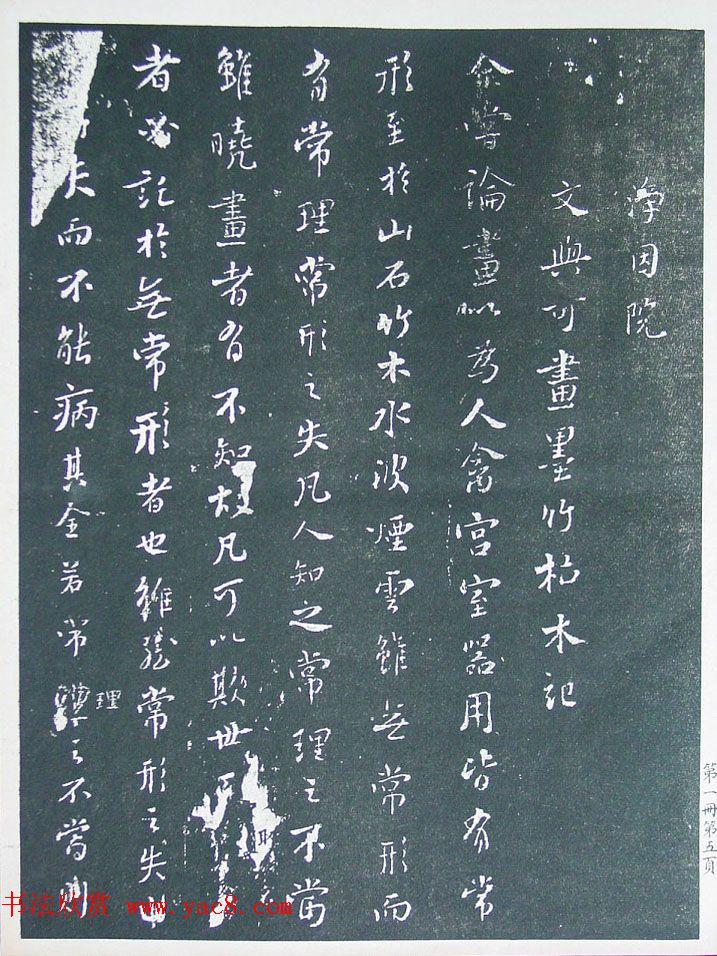 淨因院
文與可畫墨竹枯木記
余嘗論畫以為人禽宮室器用皆有常
形至於山石竹木水波煙雲雖無常形而
有常理常形之失凡人知之常理之不當
雖曉畫者有不知故凡可以欺世而取
者必託於無常形者也雖然常形之失止
失而不能病其全若常理之不當則
第一冊第五頁
书法欣赏 www.yac8.com